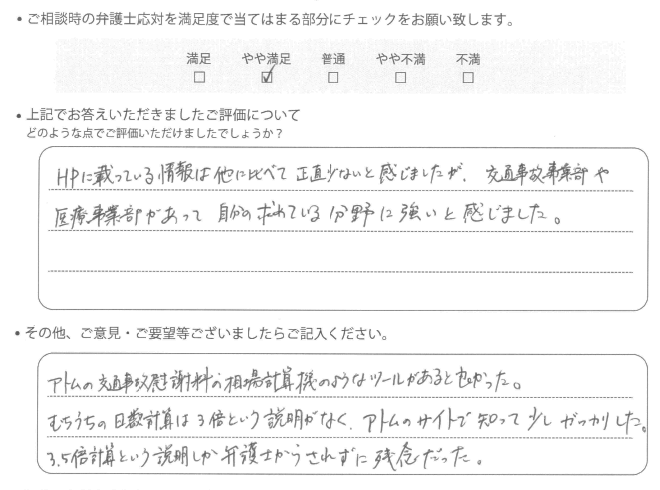 ・ご相談時の弁護士応対を満足度で当てはまる部分にチェックをお願い致します。
満足 やや満足 普通 やや不満 不満
□ ☑ □ □ □
・上記でお答えいただきましたご評価について
どのような点でご評価いただけましたでしょうか？
HPに載っている情報は他に比べて正直少ないと感じましたが、交通事故事業部や
医療事業部があって自分の求めている分野に強いと感じました。
・その他、ご意見・ご要望等ございましたらご記入ください。
アトムの交通事故慰謝料の相場計算機のようなツールがあると良かった。
むちうちの日数計算は3倍という説明がなく、アトムのサイトで知って少しガッカリした。
3.5倍計算という説明しか弁護士からされずに残念だった。